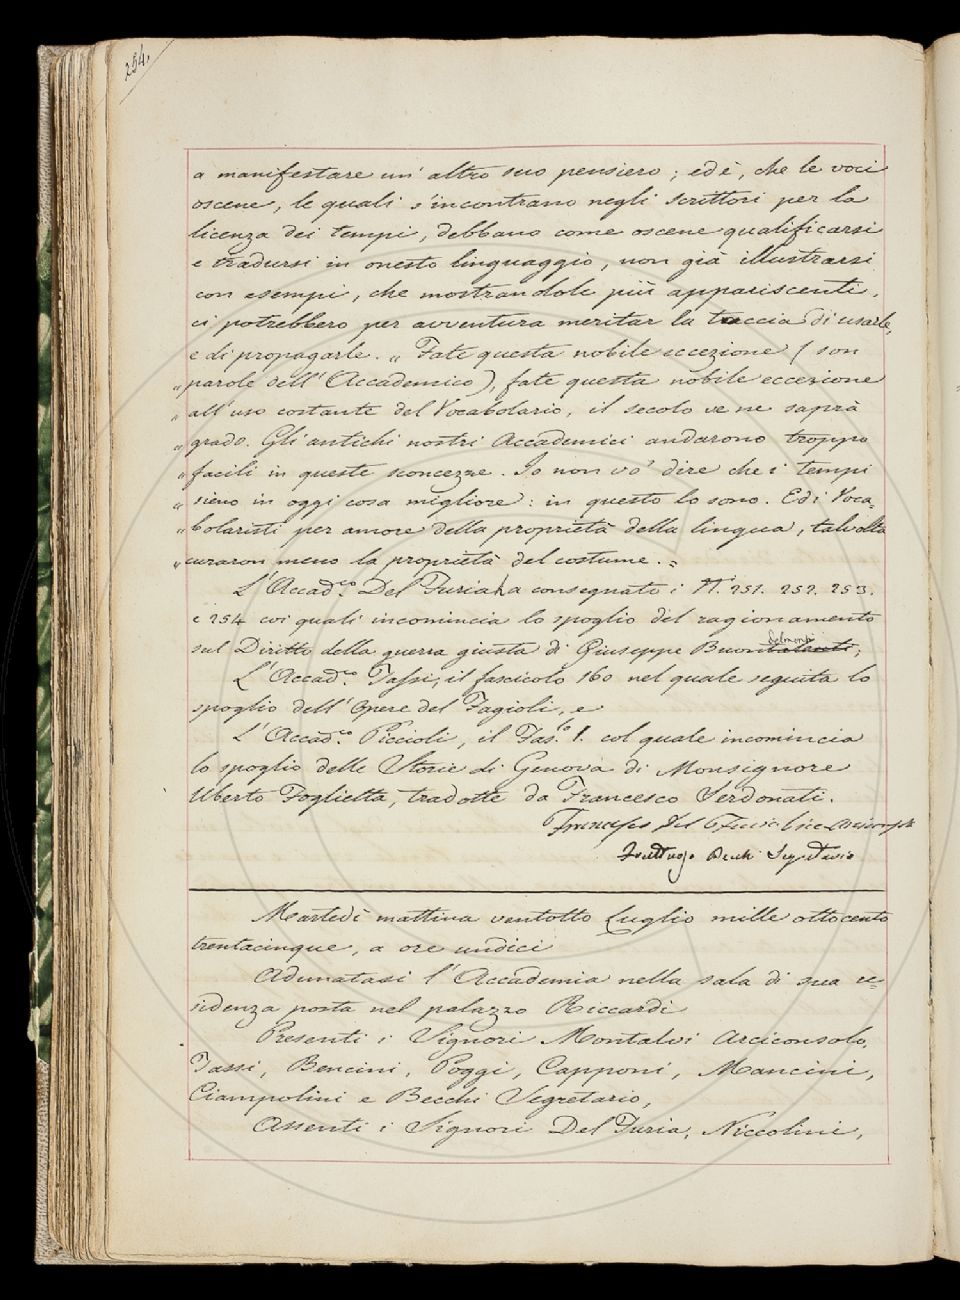 254.
a manifestare un' altro suo pensiero; ed è, che le voci
oscene, le quali s'incontrano negli scrittori per la
licenza dei tempi, debbano come oscene qualificarsi
e tradursi in onesto linguaggio, non già illustrarsi
con esempi, che mostrandole più appariscenti,
ci potrebbero per avventura meritar la taccia di usarle,
e di propagarle. „ Fate questa nobile eccezione (son
„ parole dell'Accademico), fate questa nobile eccezione
„ all'uso costante del Vocabolario, il secolo ve ne saprà
„ grado. Gli antichi nostri Accademici andarono troppo
„ facili in queste sconcezze. Io non vo' dire che i tempi
„ sieno in oggi cosa migliore: in questo lo sono. Ed i Voca=
„ bolaristi per amore della proprietà della lingua, talvolta
„ curaron meno la proprietà del costume. „
L'Accad.co Del Furia ha consegnato i N.i 251. 252. 253.
e 254 coi quali incomincia lo spoglio del ragionamento
sul Diritto della guerra giusta di Giuseppe Buon
L'Accad.co Tassi, il fascicolo 160 nel quale seguita lo
spoglio dell'Opere del Fagioli, e
L'Accad.co Piccioli, il Fas.lo 1. col quale incomincia
lo spoglio delle Storie di Genova di Monsignore
Uberto Foglietta, tradotte da Francesco Serdonati.
Francesco Del Furia
Fruttuoso Becchi Segretario
Martedì mattina ventotto Luglio mille ottocento
trentacinque, a ore undici
Adunatasi l'Accademia nella sala di sua re=
sidenza posta nel palazzo Riccardi
Presenti i Signori Montalvi Arciconsolo,
Tassi, Bencini, Poggi, Capponi, Mancini,
Ciampolini e Becchi Segretario,
Assenti i Signori Del Furia, Niccolini,